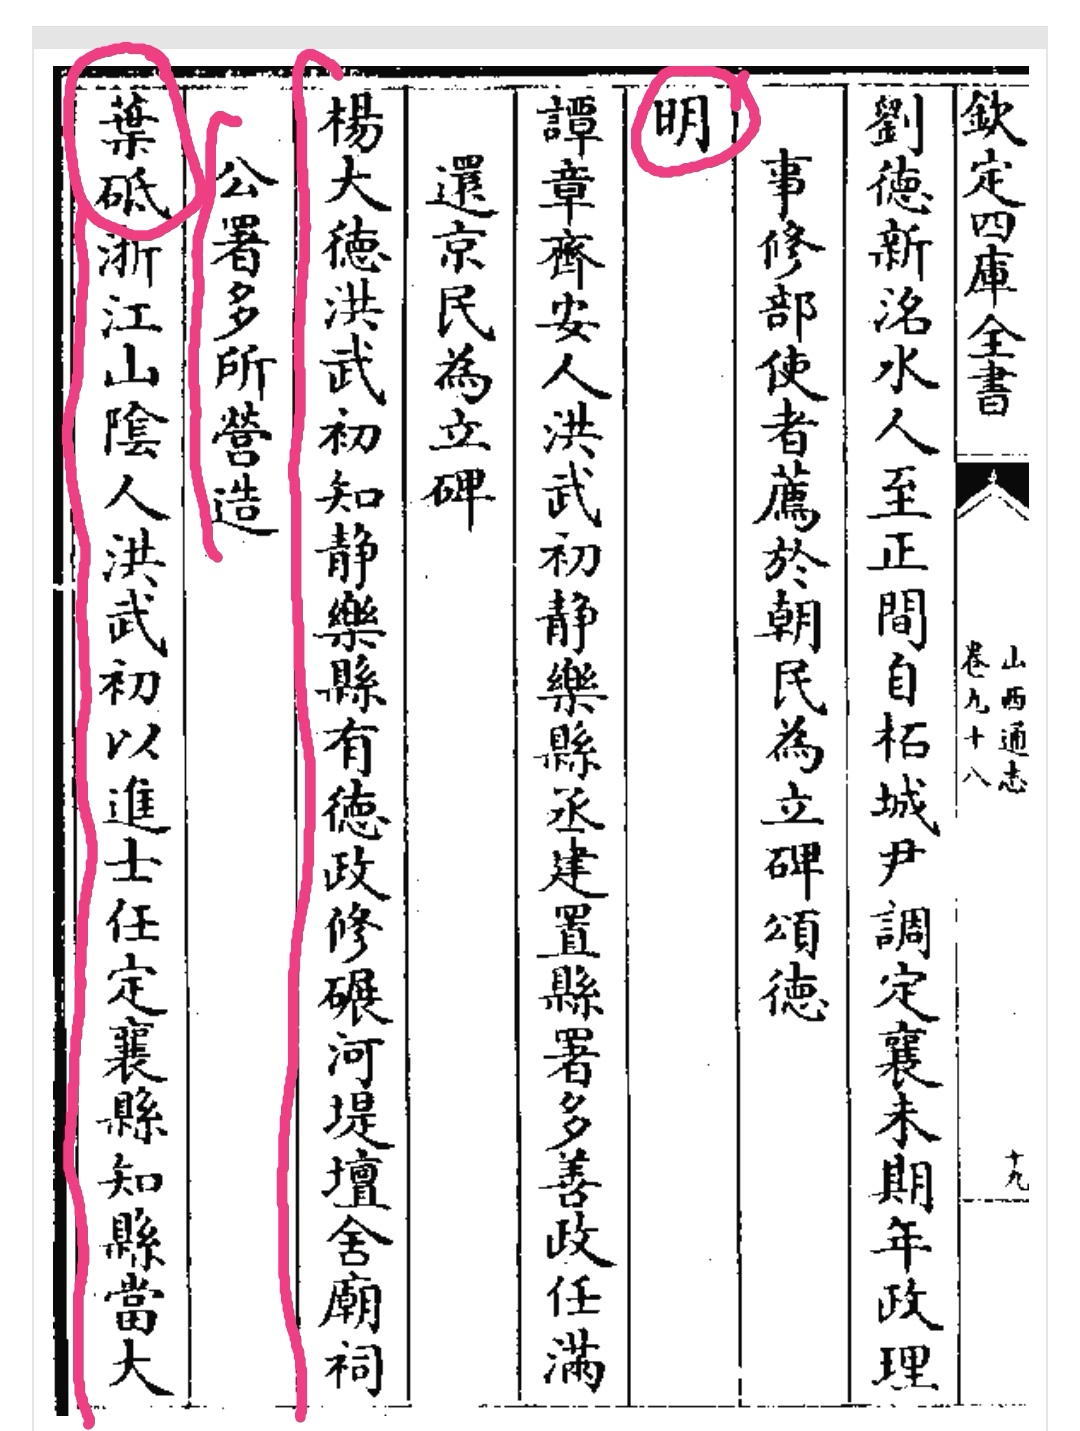 欽定四庫全書
山西通志
卷九十八
十九
劉德新洺水人至正間自柘城尹調定襄未期年政理
事修部使者薦於朝民為立碑頌德
明
譚章齊安人洪武初静樂縣丞建置縣署多善政任滿
還京民為立碑
楊大德洪武初知静樂縣有德政修碾河堤壇舍廟祠
公署多所營造
葉砥浙江山陰人洪武初以進士任定襄縣知縣當大